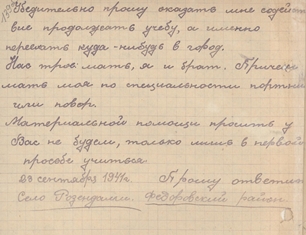 Убедительно прошу оказать мне содейст
вие продолжать учебу, а именно
переехать куда-нибудь в город.
Нас трое: мать, я и брат. Причем
мать моя по специальности портних
или повар.
Материальной помощи просить у
Вас не будем, только лишь в первой
просьбе учиться.
23 сентября 1941г. Прошу ответить
Село Розендамм. Федоровский район